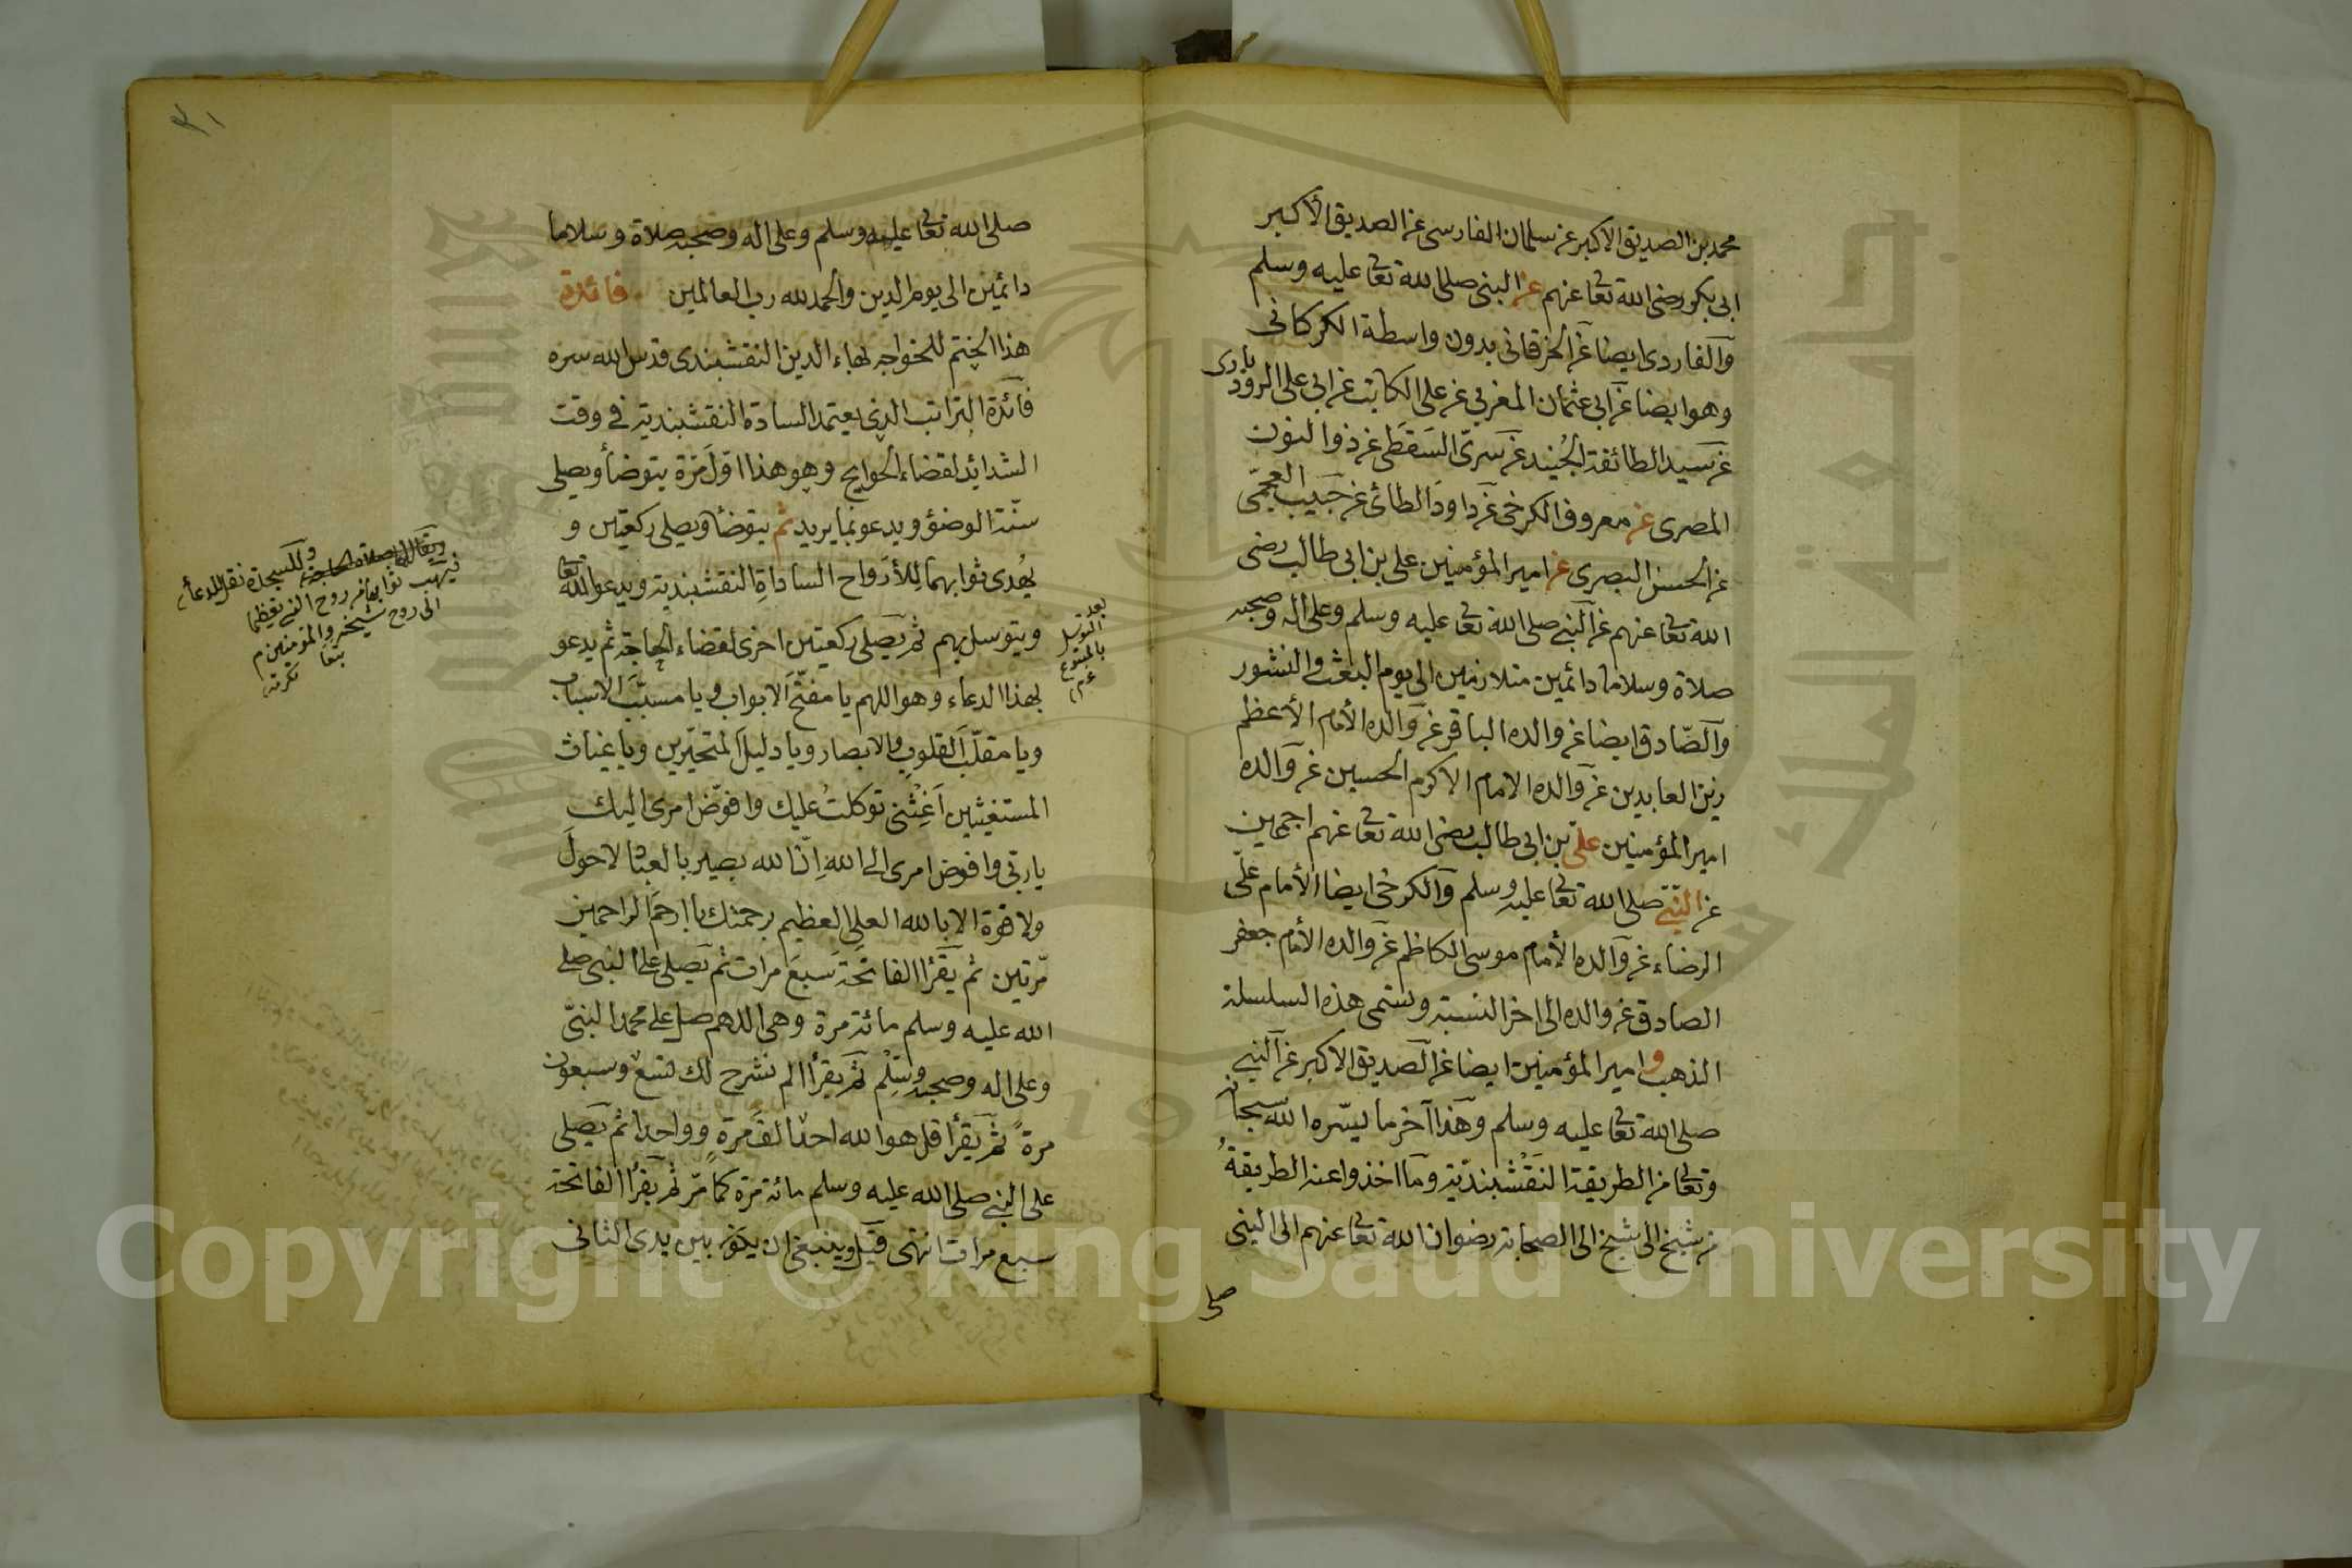 محمد بن الصديق الاكبر عن سلمان الفارسى عن الصديق الأكبر
ابى بكر رضى الله تعالى عنهم عن النبى صلى الله تعالى عليه وسلم
والفاردى ايضا عن الخرقانى بدون واسطة الكركانى
وهو ايضا عن ابى عثمان المغربى عن على الكاتب عن ابى على الرودبارى
عن سيد الطائفة الجُنيد عن سَرىّ السَقَطى عن ذو النون
المصرى عن معروف الكرخى عن داود الطائى عن حَبيب العجمّى
عن الحسن البصرى عن امير المؤمنين على بن ابى طالب رضى
الله تعالى عنهم عن النبى صلى الله تعالى عليه وسلم وعلى اله وصحبه
صلاة وسلاما دائمين متلازمين الى يوم البعث والنشور
والصّادق ايضا عن والده الباقر عن والده الأمام الأعظم
زين العابدين عن والده الامام الاكرم الحسين عن والده
امير المؤمنين علىّ بن ابى طالب رضى الله تعالى عنهم اجمعين
عن النّبى صلى الله تعالى عليه وسلم والكرخى ايضا الأمام علّى
الرضاء عن والده الأمام موسى الكاظم عن والده الأمام جعفر
الصادق عن والده الى اخر النسبة وستمى هذه السلسلة
الذهب و امير المؤمنين ايضا عن الصديق الاكبر عن النبى
صلى الله تعالى عليه وسلم وهذا آخر ما يسّره الله سبحانه
وتعالى من الطريقة النَقْشبنديّة وما اخذوا عنه الطريقةُ
من شيخ الى شيخ الى الصحابة رضوان الله تعالى عنهم الى النبى
صلى
٣١
صلى الله تعالى عليه وسلم وعلى اله وصحبه صلاة وسلاما
دائمين الى يوم الدين والحمد لله رب العالمين فائدة
هذا الختم للخواجه بهاء الدين النقشبندى قدس الله سره
فائدة التراتب الذى يعتمد السادة النقشبندية فى وقت
الشدايد لقضاء الحوايج وهو هذا اوّل مَرّة يتوضأ ويصلى
سنّة الوضوء ويدعو بما يريد ثم يتوضأ ويصلى ركعتين و
يُهدى ثوابهما للأرواح الساداة النقشبندية ويدعو الله تعالى
ويتوسل بهم ثم يصلى ركعتين اخرى لقضاء الحاجة ثم يدعو
بهذا الدعاء وهو اللهم يا مفتّح الابواب ويا مسبّبَ الاسباب
ويا مقلّبَ القلوب والابصار ويا دليلَ المتحيّرين ويا غياث
المستغيثين اَغِثْنى توكلتُ عليك وافوّض امرى اليك
يا ربّى وافوض امرى الى الله اِنّ الله بصير بالعباد لاحولَ
ولا قوة الا بالله العلى العظيم برحمتك يا ارحمَ الراحمين
مّرتين ثم يَقْرأ الفاتحة سَبعَ مرات ثم يصلى على النبى صلى
الله عليه وسلم مائة مرة وهى اللهم صل على محمد النبىّ
وعلى اله وصحبه وسَلّم ثم يقرأ الم نشرح لك تسع وسبعون
مرة ثم يَقرأ قل هو الله احد الفَ مرةٍ وواحدا ثم يَصلى
على النبى صلى الله عليه وسلم مائة مرّة كما مّر ثم يَقرأ الفاتحة
سبع مرات انتهى قيل وينبغى ان يكون بين يدى الثانى
بعد
التوسل
Copyright © King Saud University